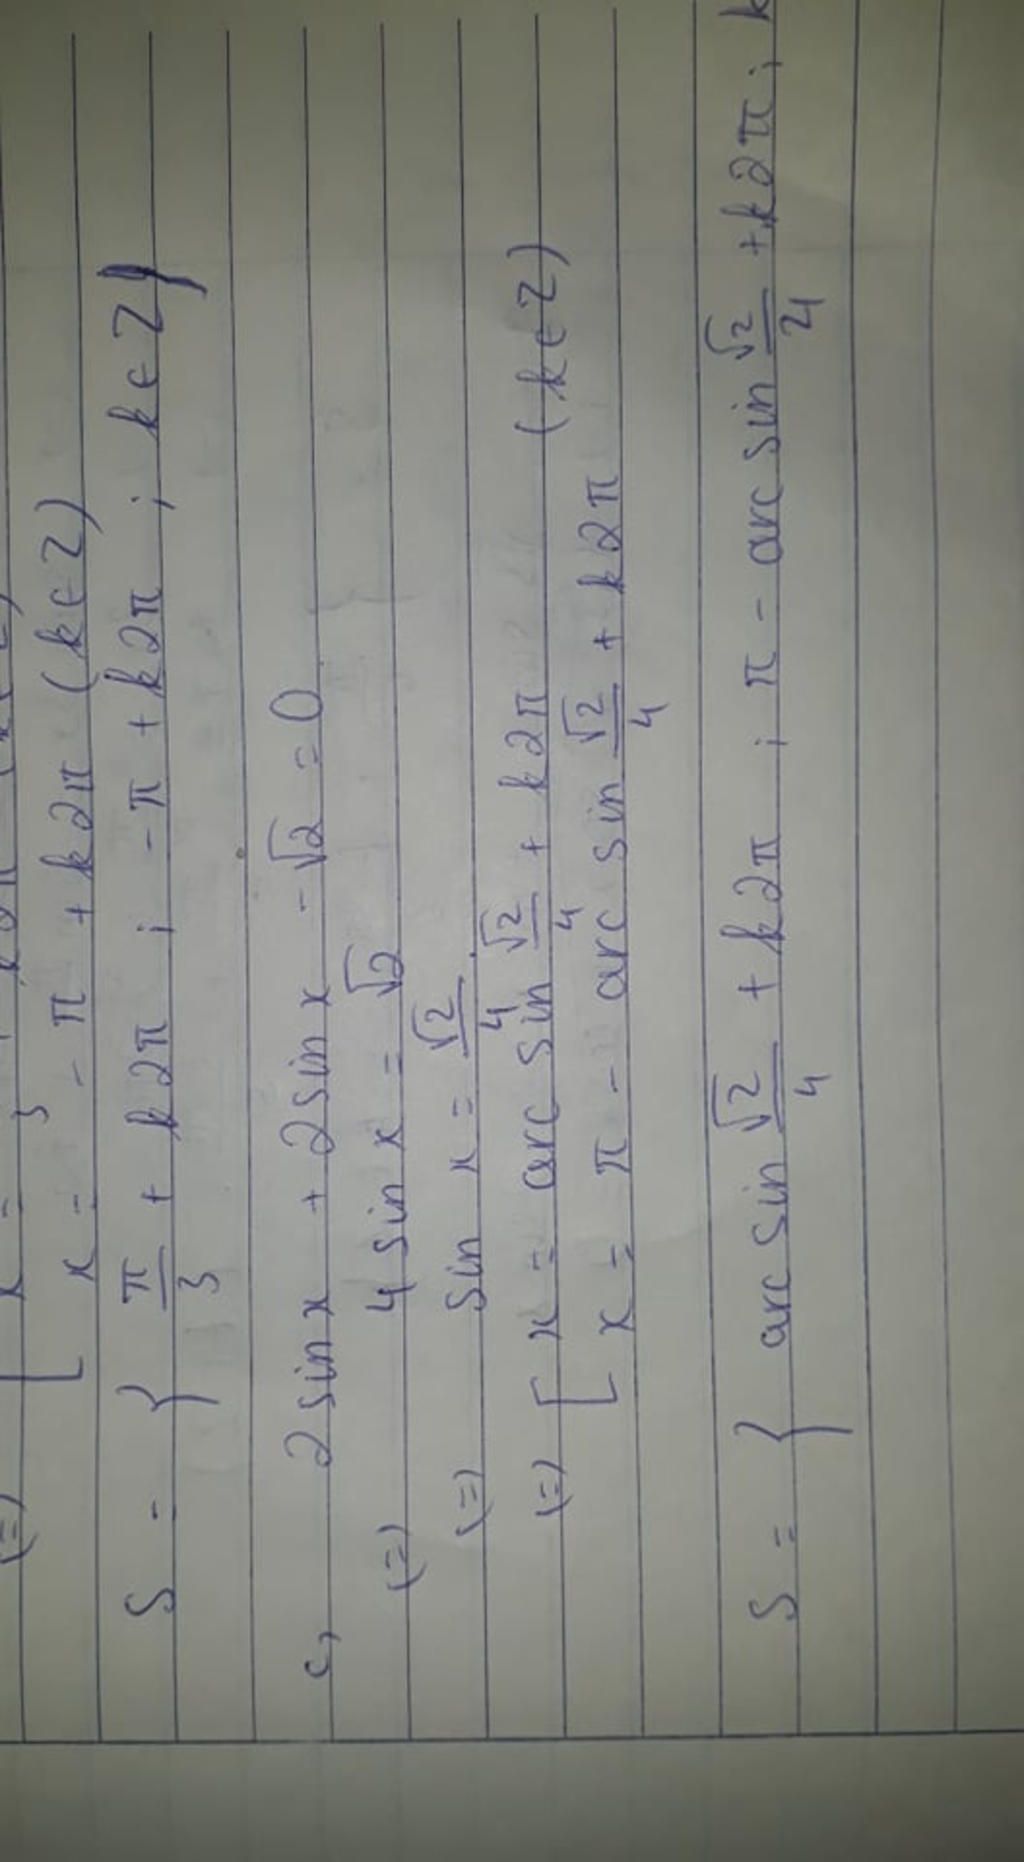 x = - π + k2π (k ∈ Z)
S = { π/3 + k2π ; -π + k2π ; k ∈ Z}
c, 2sinx + 2sinx - √2 = 0
(=) 4 sin x = √2
(=) sin x = √2/4
(=) [ x = arc sin √2/4 + k2π (k ∈ Z)
x = π - arc sin √2/4 + k2π
S = { arc sin √2/4 + k2π ; π - arc sin √2/4 + k2π ; k